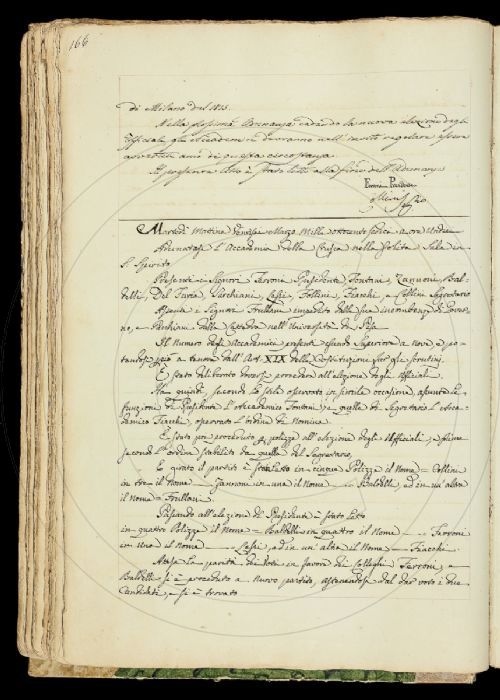 166
di Milano del 1815.
Nella prossima Adunanza cadendo la nuova elezione degli
Uffiziali gli Accademici dovranno nell'invito regolare essere
avvertiti anco di questa circostanza
Il presente Atto è stato letto alla fine dell'Adunanza
Ferroni Presidente
Martedì Mattina Ventisei Marzo Mille ottocento sedici a ore Undici
Adunatasi l'Accademia della Crusca nella solita Sala in
S. Spirito.
Presenti i Signori Ferroni Presidente, Fontani, Zannoni, Bal-
delli, Del Furia, Sarchiani, Lessi, Follini, Fiacchi, e Collini Segretario
Assenti i Signori Frullani impedito dalle sue incombenze di Gover-
no, e dalla Cattedra nell'Università di Pisa
Il Numero degli Accademici presenti essendo Superiore a nove, e po-
tendosi però a tenore dell'Art. XIX della Costituzione far gli scrutini.
È stato deliberato doversi procedere all'elezione degli Uffiziali.
Ha quindi, secondo lo stile osservato in simile occasione, assunto la
funzione di Presidente l'Accademico Fontani, e quella di Segretario l'Acca-
demico Fiacchi, osservato l'ordine di Nomina.
È stato poi proceduto per polizze all'elezione degli Uffiziali, e
secondo l'ordine stabilito da quella del Segretario,
E girato il partito è stato letto in cinque Polizze il Nome = Collini
in tre il Nome Zannoni in una il Nome Baldelli, ed in un'altra
il Nome = Frullani.
Passando all'elezione di Presidente è stato letto
in quattro Polizze il Nome = Baldelli in quattro il Nome Ferroni
in una il Nome Lessi, ed in un'altra il Nome Fiacchi.
Attesa la parità dei Voti in favore dei Colleghi Ferroni, e
Baldelli si è proceduto a nuovo partito, astenendosi dal dar voto i due
Candidati, e si è trovato